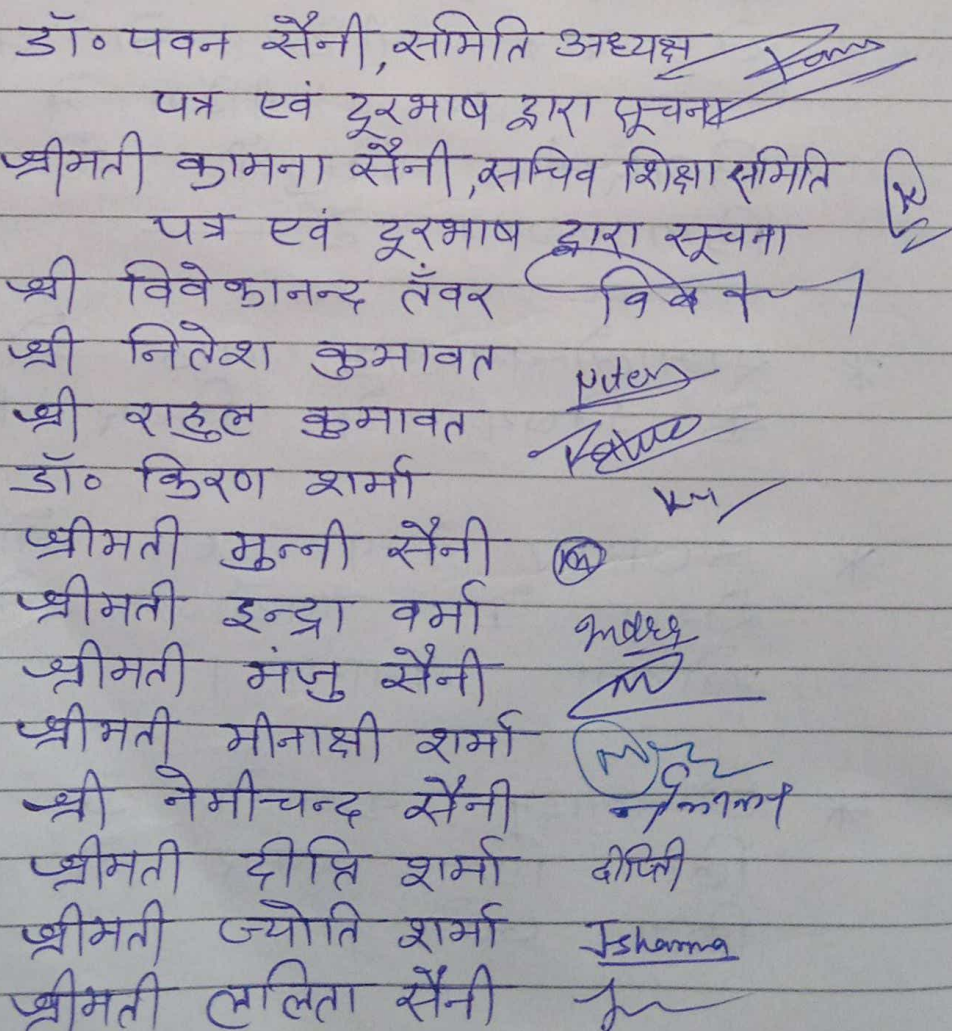 डॉ० पवन सैनी, समिति अध्यक्ष
पत्र एवं दूरभाष द्वारा सूचना
श्रीमती कामना सैनी, सचिव शिक्षा समिति
पत्र एवं दूरभाष द्वारा सूचना
श्री विवेकानन्द तँवर
श्री नितेश कुमावत
श्री राहुल कुमावत
डॉ० किरण शर्मा
श्रीमती मुन्नी सैनी
श्रीमती इन्द्रा वर्मा
श्रीमती मंजु सैनी
श्रीमती मीनाक्षी शर्मा
श्री नेमीचन्द सैनी
श्रीमती दीप्ति शर्मा दीप्ति
श्रीमती ज्योति शर्मा Jsharma
श्रीमती ललिता सैनी